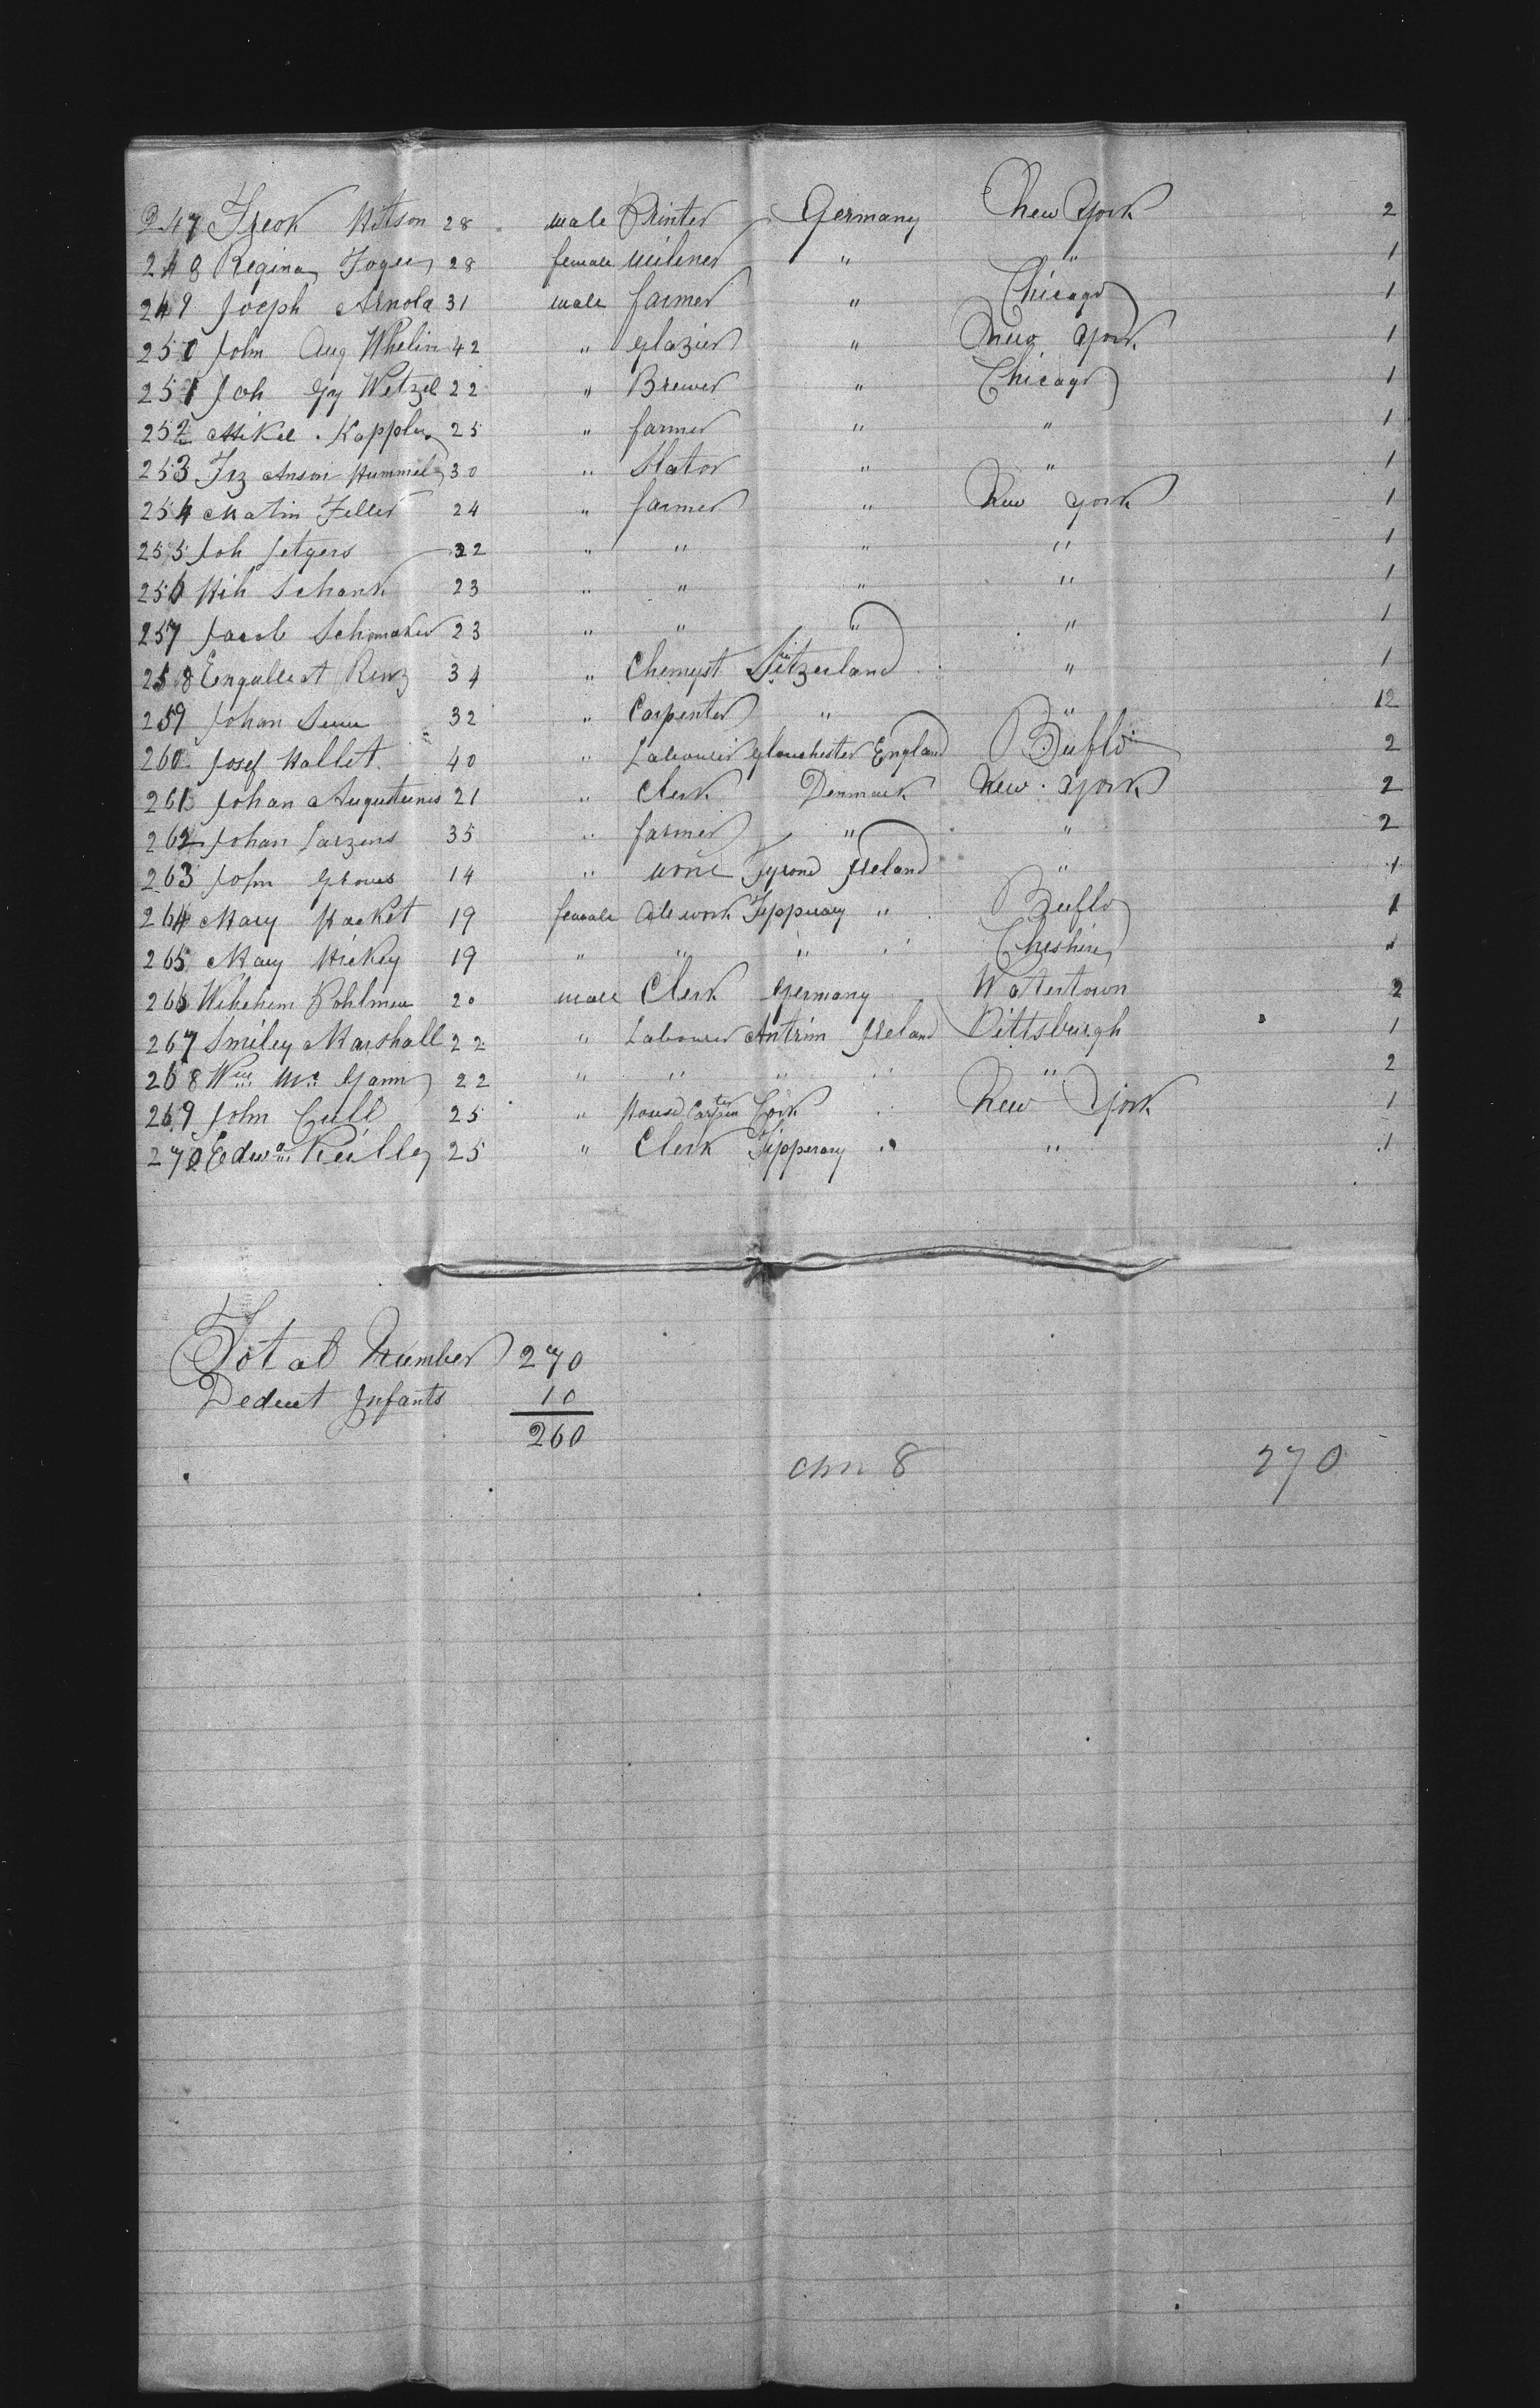 247 Freok Hitson 28 male Printer Germany New York 2
248 Regina 28 female milener " " 1
249 Joeph Arnold 31 male farmer " Chicago 1
250 John Aug Whelin 42 " glazier " New York 1
251 Joh Gg Wetzel 22 " Brewer " Chicago 1
252 Mikel Kappler 25 " farmer " " 1
253 Frz Anson Hummel 30 " Slator " " 1
254 Matin Feller 24 " farmer " New York 1
255 Joh Jetgers 22 " " " " 1
256 Hih Schank 23 " " " " 1
257 Jacob Schomaker 23 " " " " 1
258 Engelbert Renz 34 " Chemyst Switzerland " 1
259 Johan 32 " Carpenter " " 12
260 Josef Hallet 40 " Labourer Glouchester England Buflo 2
261 Johan Augusteinis 21 " Clerk Denmark New York 2
262 Johan Larzens 35 " farmer " " 2
263 John Groves 14 " none Tyrone Ireland " 1
264 Mary Hacket 19 female Tipperay " Buflo 1
265 Mary Hickey 19 " " " " Cheshire 1
266 Wilhelm Pohlmen 20 male Clerk Germany Wattertown 2
267 Smiley Marshall 22 " Labourer Antrim Ireland Pittsburgh 1
268 Wm Mc Gann 22 " " " " " 2
269 John Cull 25 " House Carpter Cork " New York 1
270 Edwd Reilly 25 " Clerk Tipperary " " 1
Total Number 270
Deduct Infants 10
260
chn 8 270